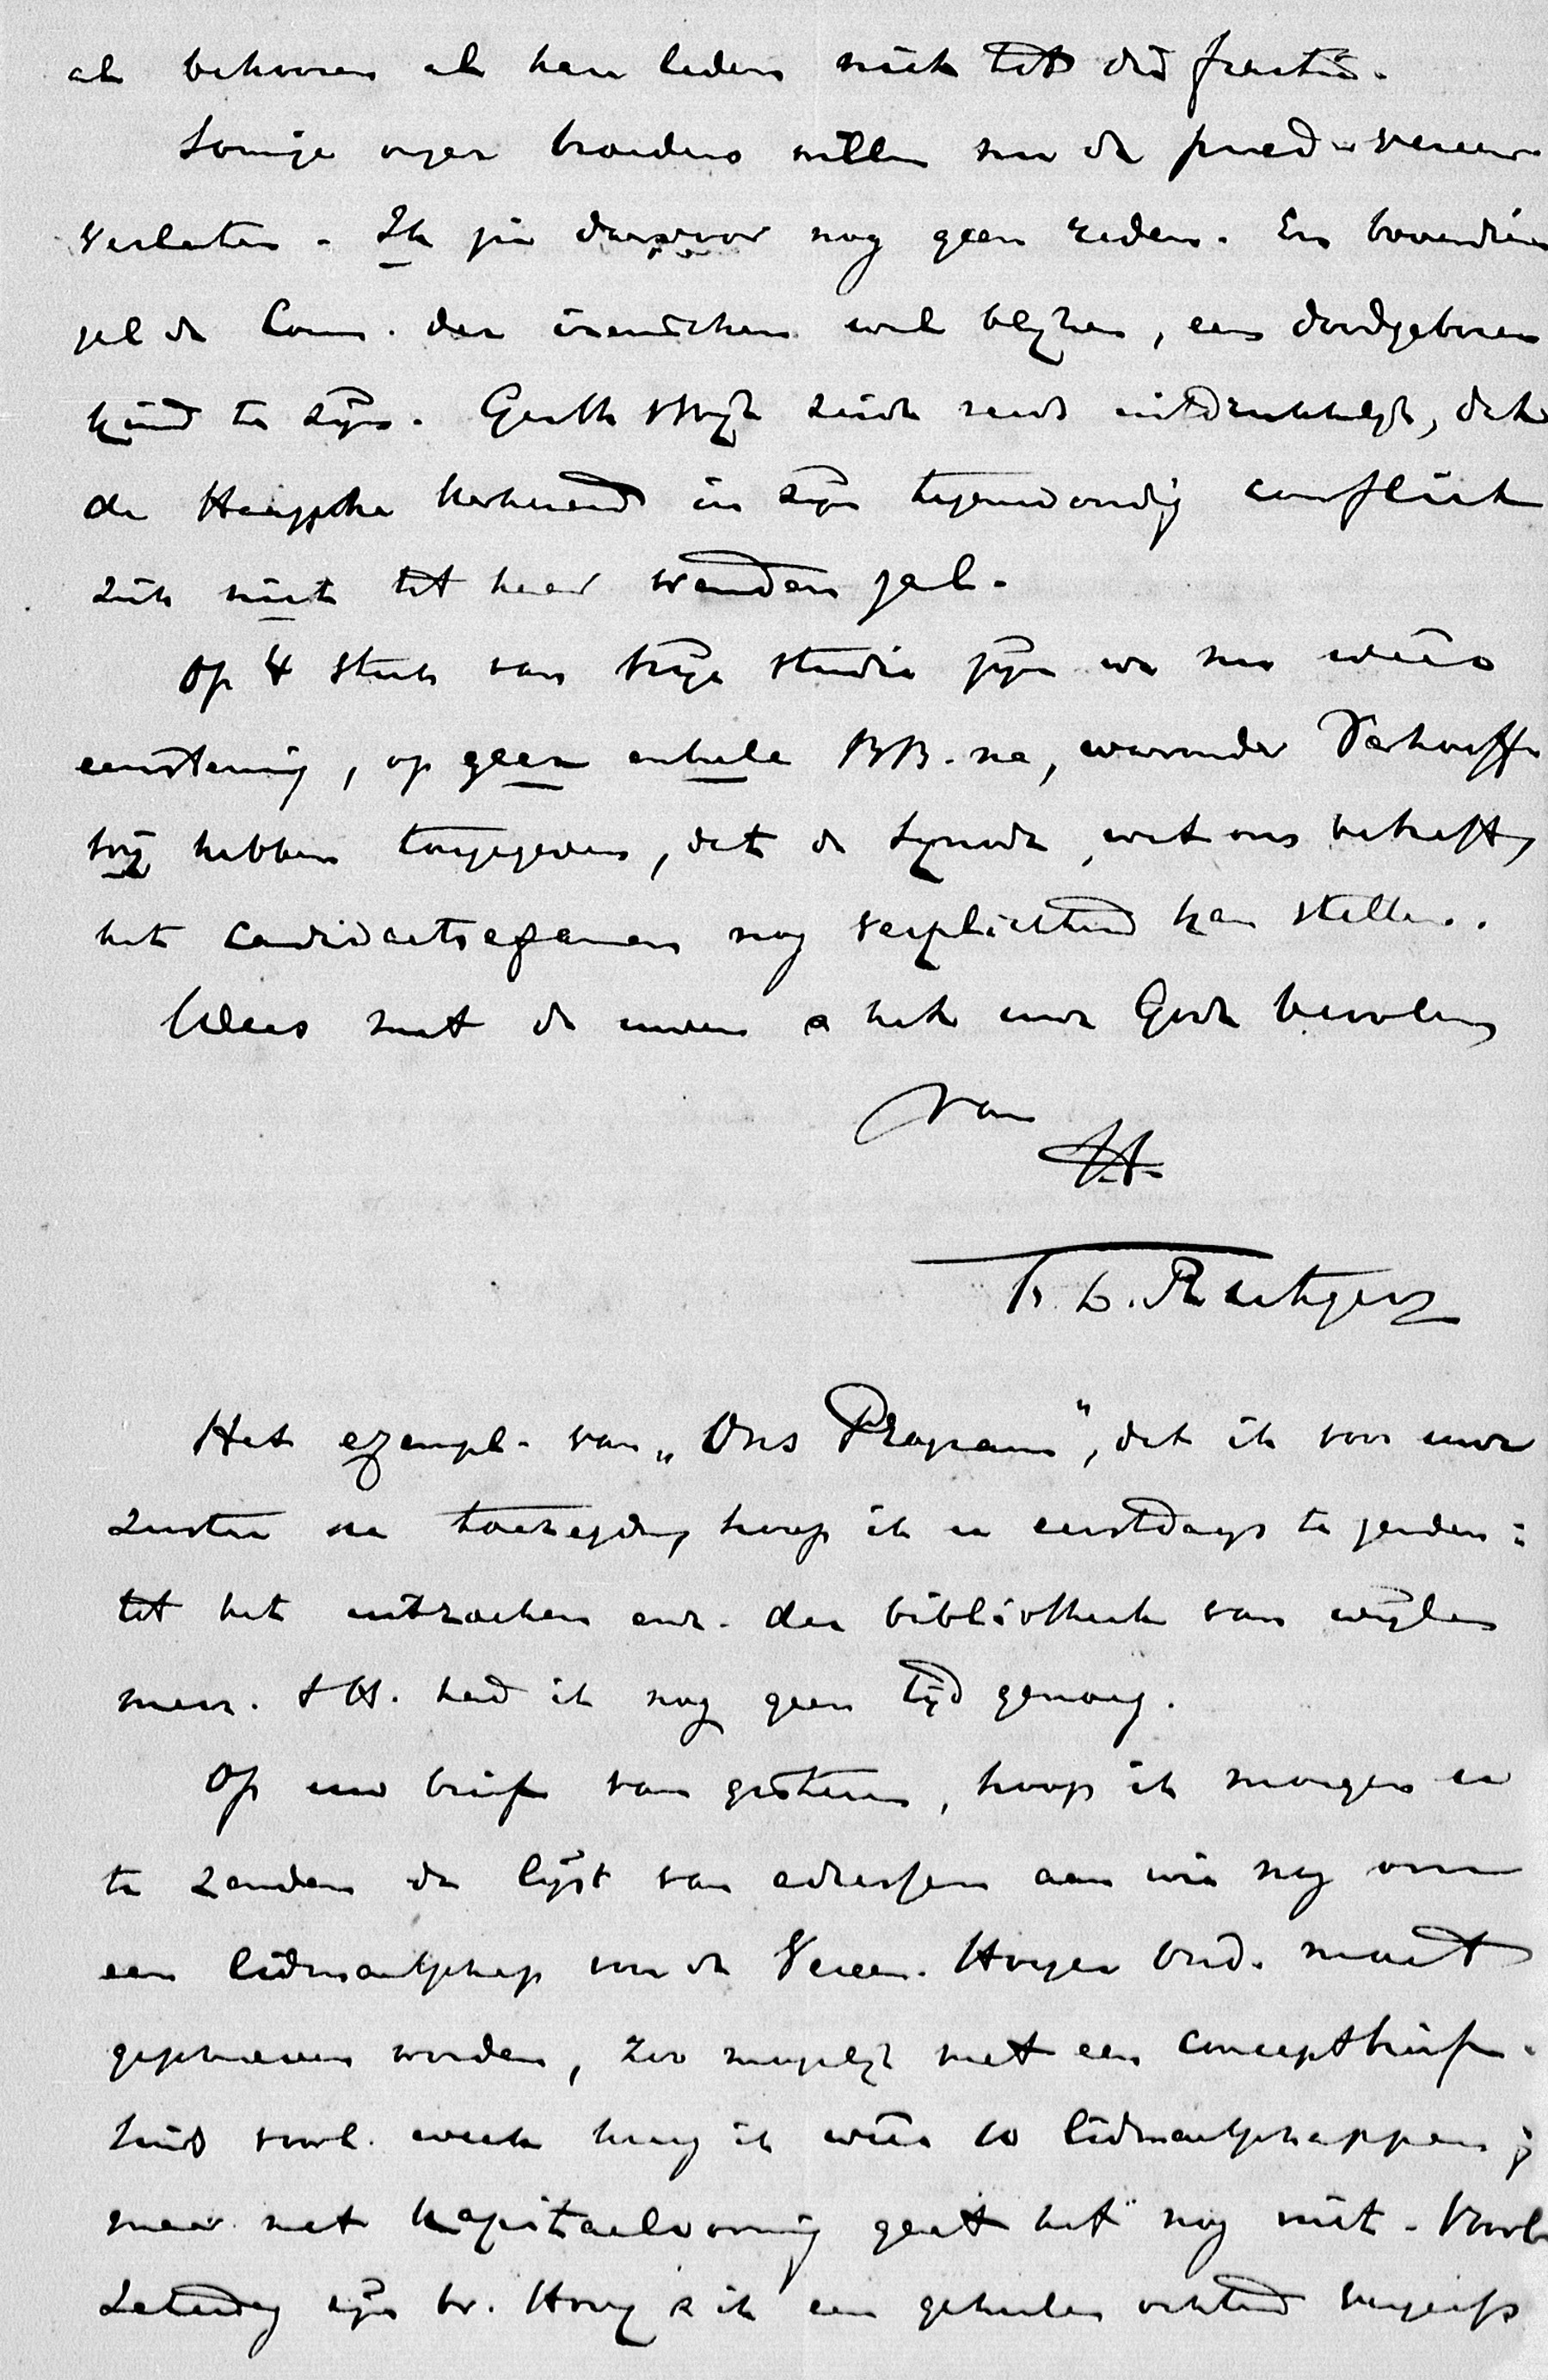 als behooren al haar leden niet tot die fractie.
Sommige onzer broeders willen nu de pred. vereen.
verlaten. Ik zie daarvoor nog geen reden. En bovendien
zal de Com. der irenischen wel blijken, een doodgeboren
kind te zijn. Gerth v Wijk zeide reeds uitdrukkelijk, dat
de Haagsche kerkeraad in zijn tegenwoordig conflict
zich niet tot haar wenden zal.
Op 't stuk van vrije studie zijn we nu weer
eenstemmig, op geen enkele BB. na, waaronder Verhoeff.
Wij hebben toegegeven, dat de Synode, wat ons betreft,
het candidaatsexamen nog verplichtend kan stellen.
Wees met de uwen & het uwe Gode bevolen
van
tt.
F. L. Rutgers
Het exempl. van „Ons Program", dat ik voor uwe
zuster na toezegging hoop ik u eerstdaags te zenden:
tot het uitzoeken enz. der bibliotheek van wijlen
mevr. had ik nog geen tijd genoeg.
Op uw brief van gisteren, hoop ik morgen u
te zenden de lijst van adressen aan wie nog om
een lidmaatschap van de Vereen. Hooger Ond. moet
geschreven worden, zoo mogelijk met een conceptbrief.
Sinds voorl. week kreeg ik weer 10 lidmaatschappen;
maar met kapitaalvorming gaat het nog niet. Voorl.
Zaterdag zijn br. Hovy & ik een geheelen ochtend vergeefs